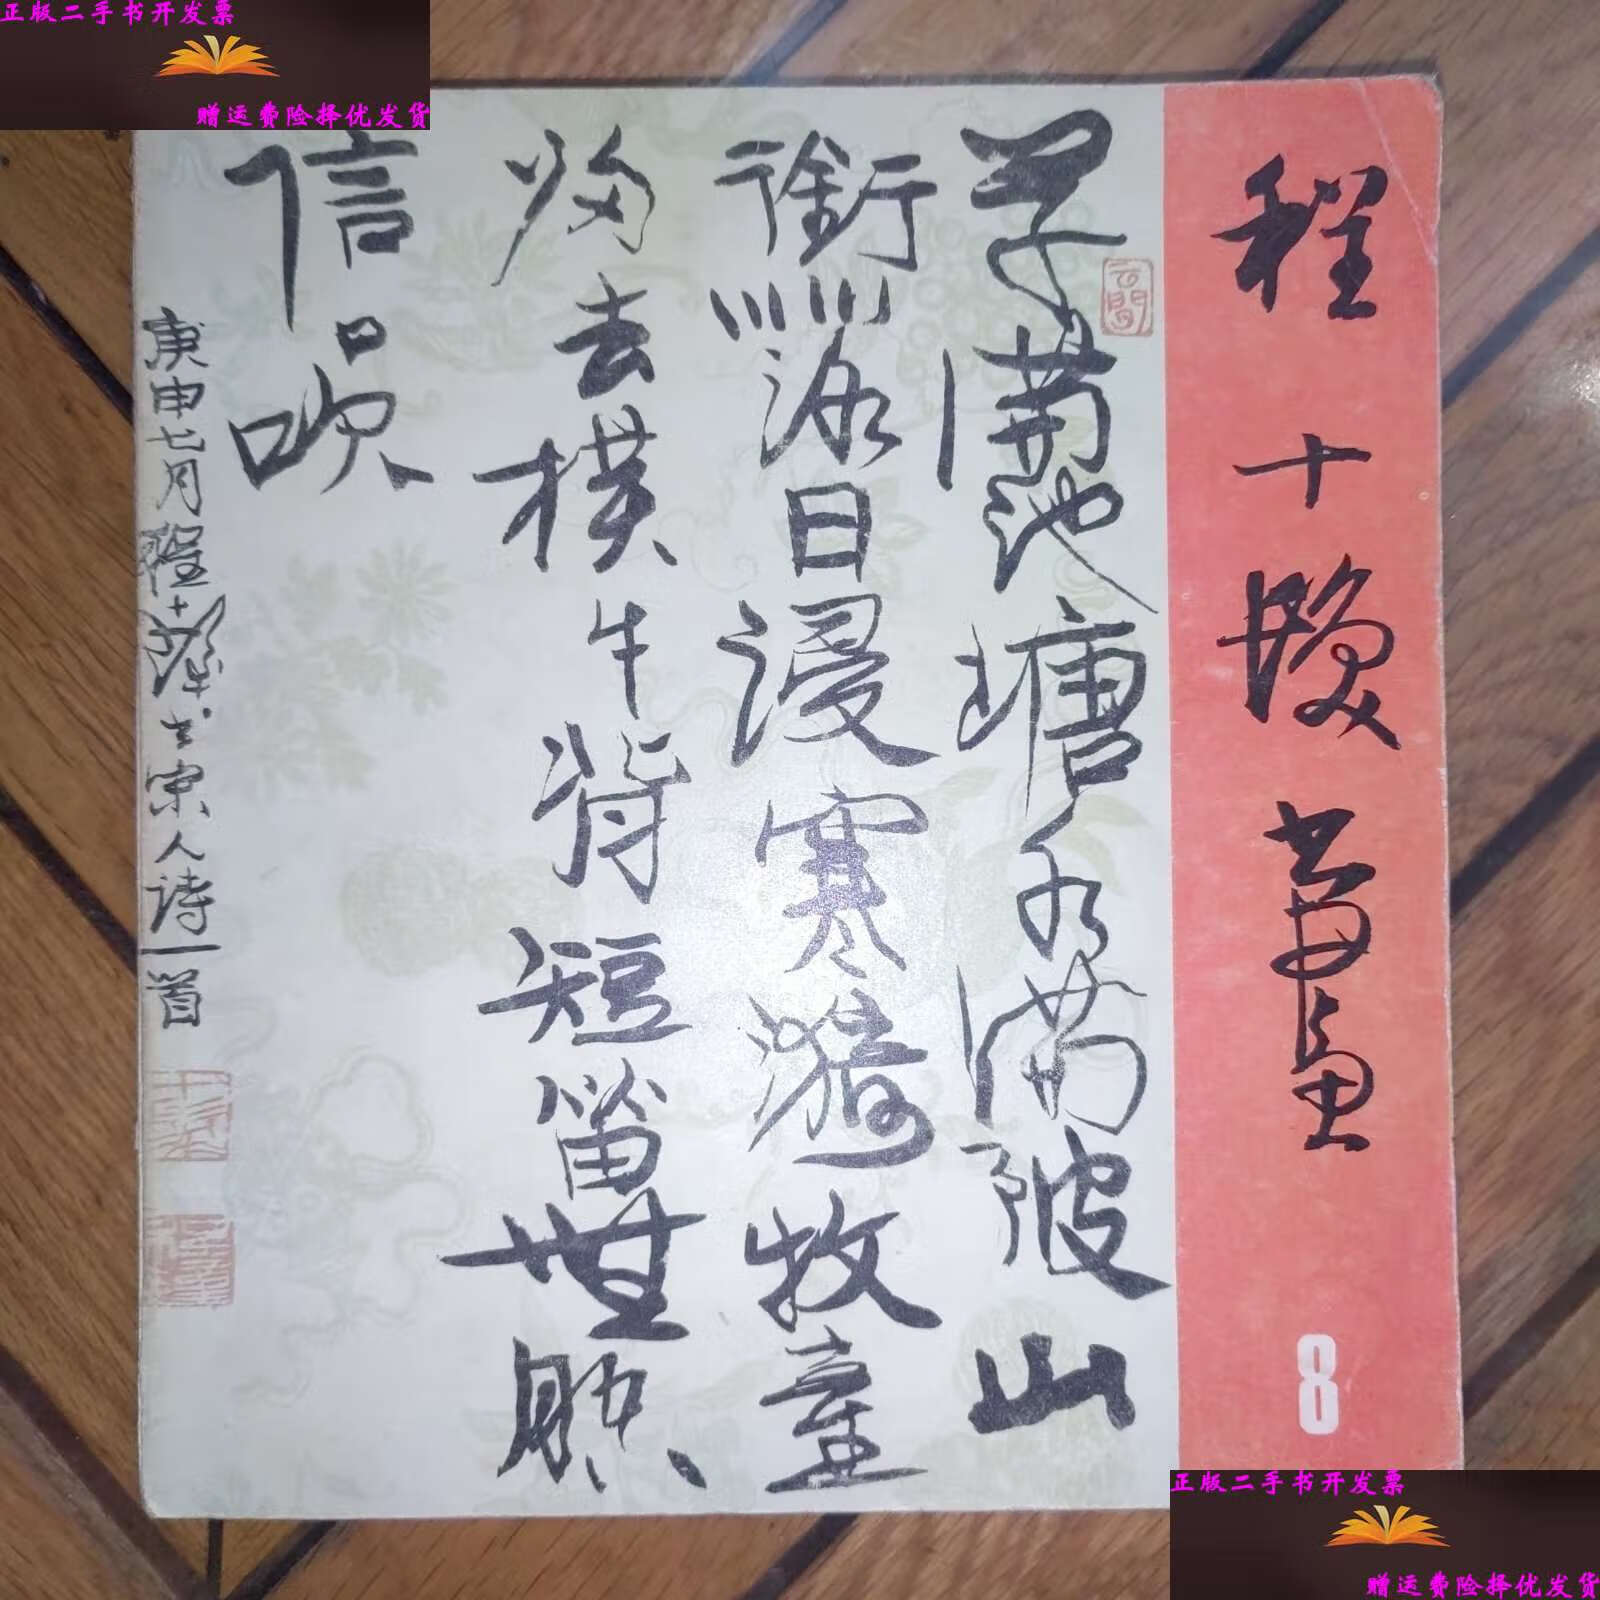 正版二手书开发票
赠运费险择优发货
程十髮书画
8
草满池塘水满陂山
衔落日浸寒漪牧童
归去横牛背短笛无腔
信口吹
庚申七月程十髮书宋人诗一首
云间
正版二手书开发票
赠运费险择优发货